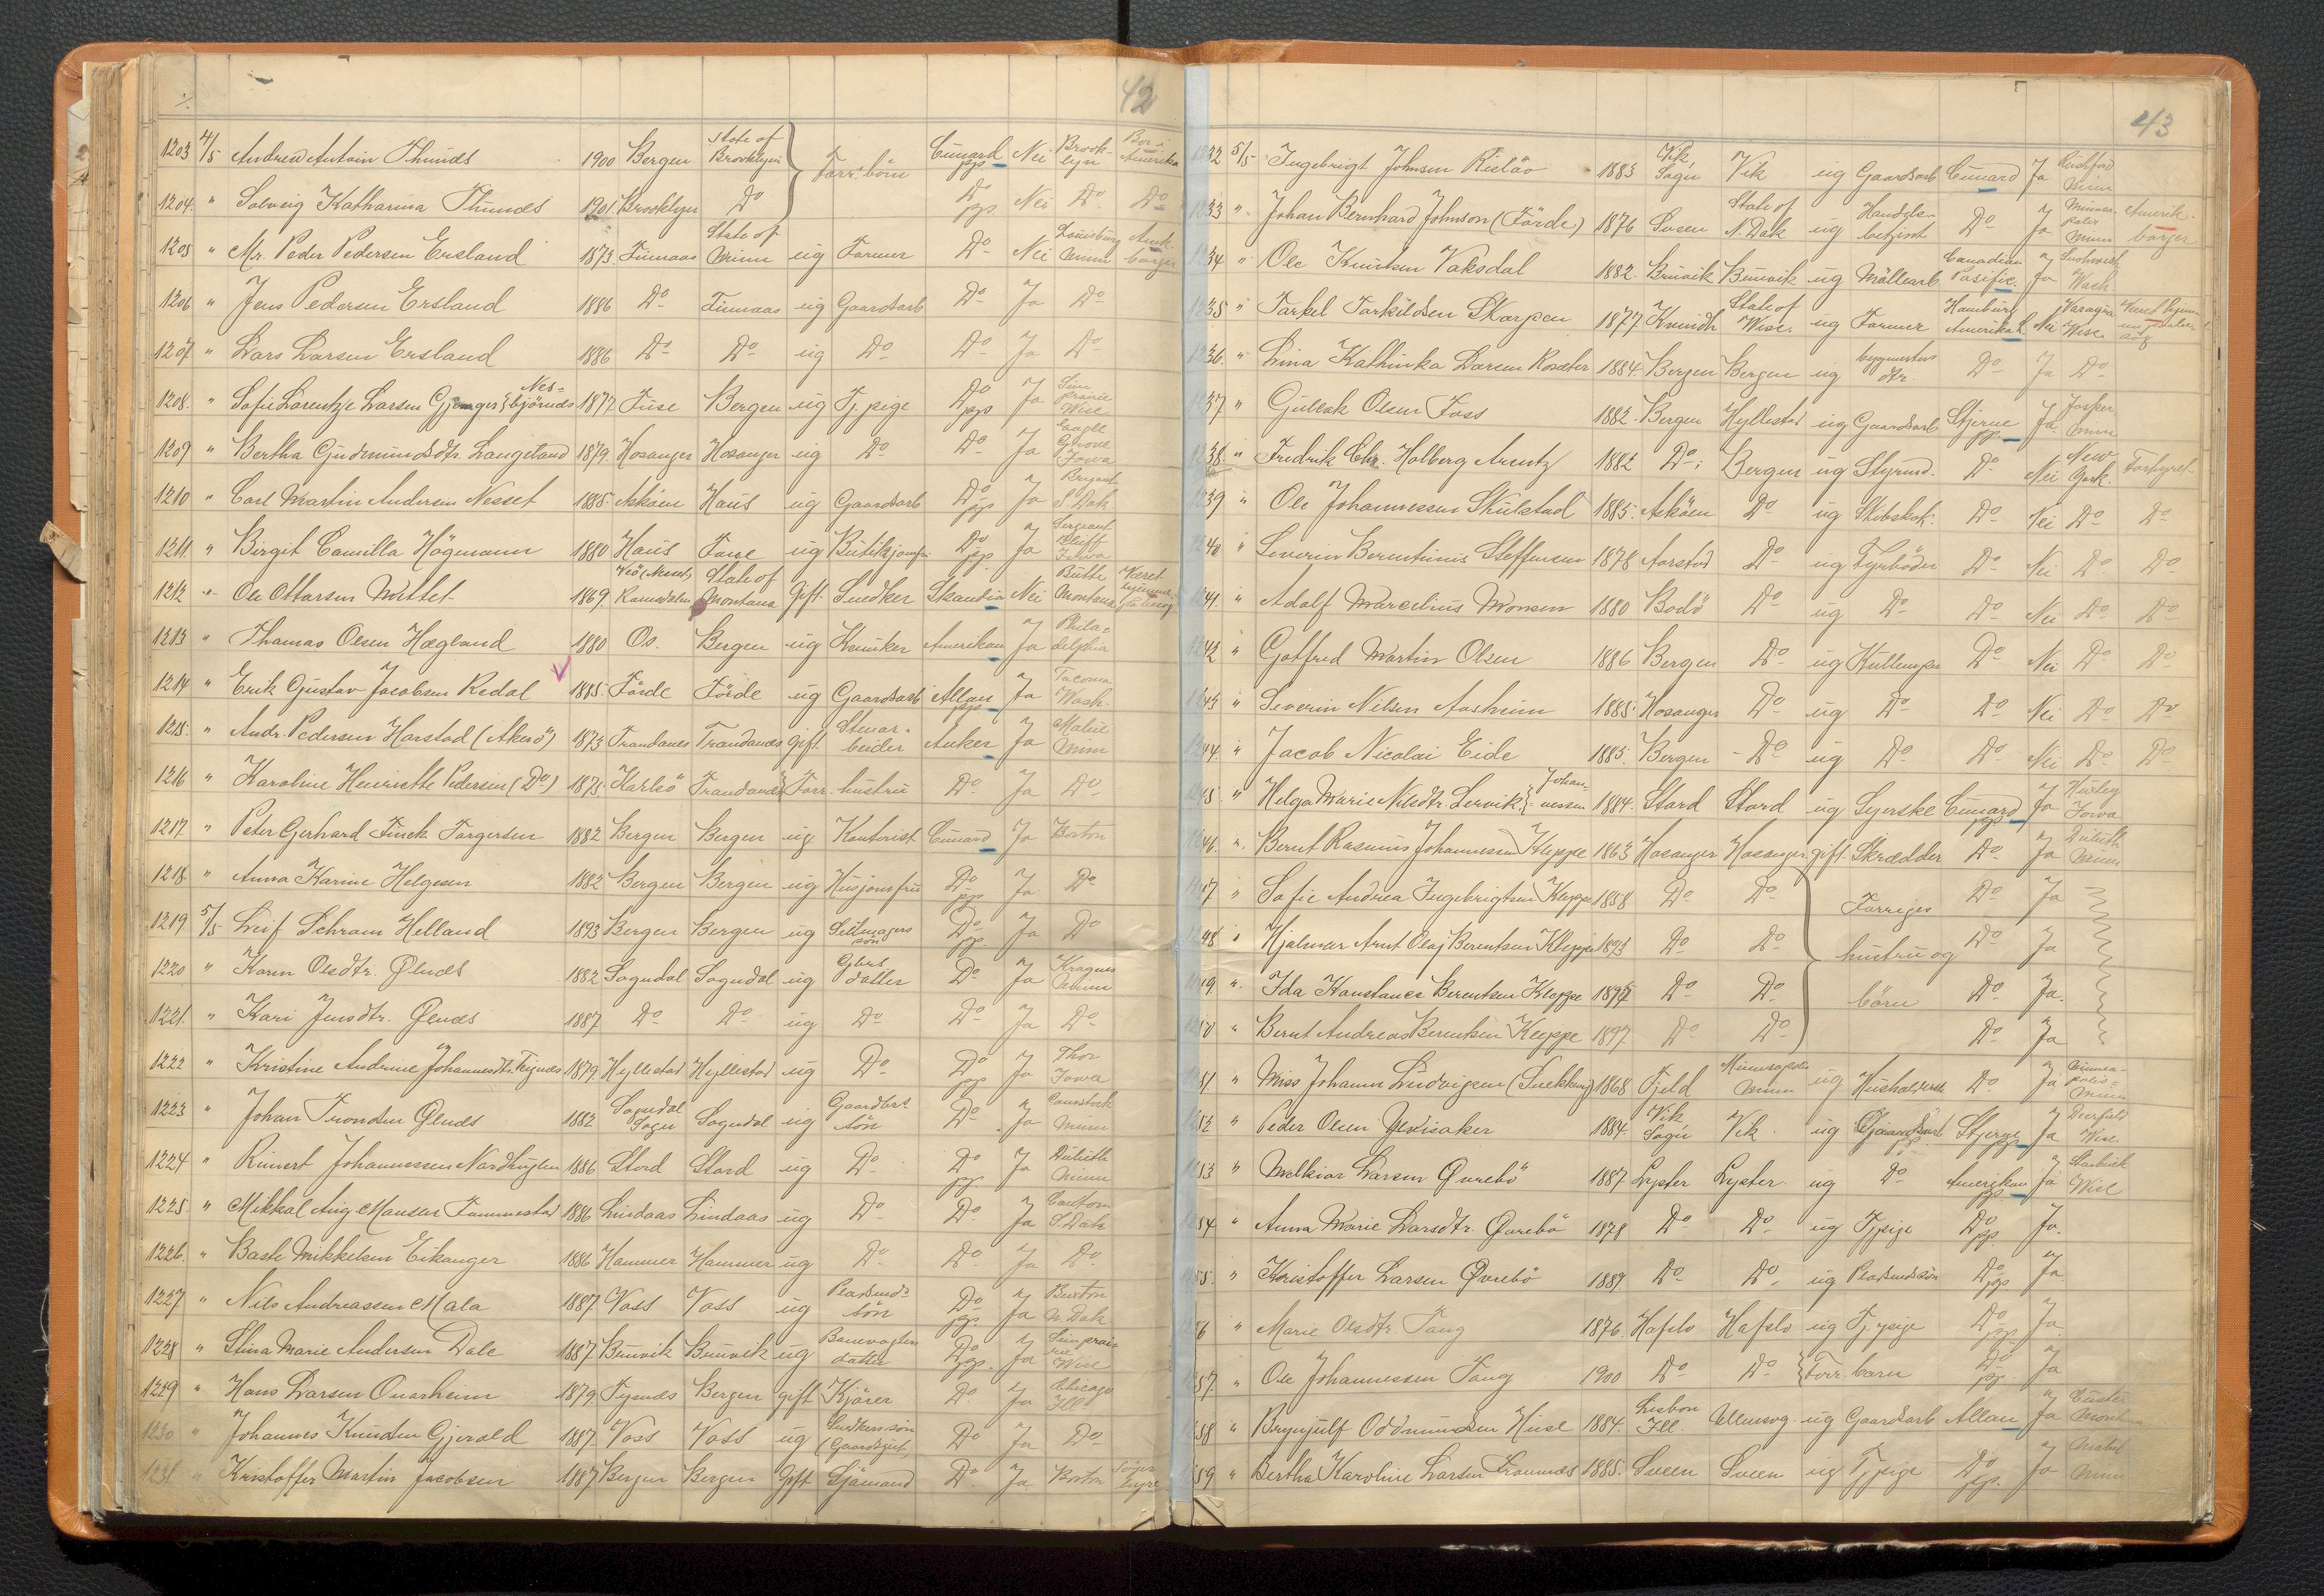 42
1203 4/5 Andrew Antoin Thunds 1900 Bergen State of Brooklyn Forr. börn Cunard pp. Nei Brook-lyn Bor i Amerika
1204. " Solveig Katharina Thunds 1901. Brooklyn Do Do pp. Nei Do Do
1205 " Mr. Peder Pedersen Ersland 1873. Finnaas State of Minn ug Farmer Do Nei Minn Amk. borger
1206 " Jens Pedersen Ersland 1886 Do Finnaas ug Gaardsarb Do Ja Do
1207 " Lars Larsen Ersland 1886 Do Do ug Do Do Ja Do
1208. " Sofie Lorentze Larsen Nes-björnds 1877 Fuse Bergen ug Tj. pige Do pp Ja Sun prairie Wisc
1209 " Bertha Gudmundsdtr. Langeland 1879. Hosanger Hosanger ug Do Do Ja Eagle Grove Iowa
1210 " Carl Martin Andersen Nesset 1885. Asköen Haus ug Gaardsarb Do pp Ja Bryant S. Dak
1211. " Birgit Camilla Högmann 1880 Haus Fane ug Butikjomfr Do pp. Ja Sergeant Bluff Iowa
1212 " Ole Ottarsen Mittet 1869. Veö (Nesset) Romsdalen State of Montana Gift. Snedker Skandia Nei Butte Montana Været hjemme paa besøg
1213 " Thomas Olsen Hægland 1880 Os. Bergen ug Amerikan Ja Phila-delphia
1214 " Erik Gustav Jacobsen Redal 1885. Förde Förde ug Gaardsarb Allan pp Ja Tacoma Wash.
1215. " Andr. Pedersen Harstad (Akerö) 1873 Trondanes Trondanes gift. Stenar-beider Anker Ja Minn
1216 " Karoline Henriette Pedersen (Do) 1875. Karlsö Trondanes Forr. hustru Do Ja Do
1217. " Peter Gerhard Finck Torgersen 1882 Bergen Bergen ug Kontorist Cunard Ja Boston
1218. " Anna Karine Helgesen 1882 Bergen Bergen ug Husjomfru Do pp Ja Do
1219 5/5 Leif Schram Helland 1893 Bergen Bergen ug søn Do pp Ja Do
1220 " Karen Olsdtr. Ølnes 1882 Sogndal Sogndal ug Gbrs datter Do Ja Kragnes Minn
1221. " Kari Jensdtr. Ølnes 1887 Do Do ug Do Do Ja Do
1222 " Kristine Andrine Johannesdtr. 1879. Hyllestad Hyllestad ug Do Do pp Ja Thor Iowa
1223 " Johan Trondsen Ølnes 1882 Sogndal Sogn Sogndal ug Gaardbrs sön Do Ja Comstock Minn
1224 " Rimert Johannessen Nordhuglen 1886 Stord Stord ug Do Do pp Ja Duluth Minn
1225. " Mikkal Aug. Mansen Fammestad 1886 Lindaas Lindaas ug Do Do. Ja Canton S. Dak
1226. " Baste Mikkelsen Eikanger 1886 Hammer Hammer ug Do Do Ja Do
1227 " Nils Andreassen Mala 1887. Voss Voss ug Pladsmds sön Do pp. Ja Buxton N. Dak
1228 " Stina Marie Andersen Dale 1887 Bruvik Bruvik ug Banevogten datter Do pp. Ja Sun prai-rie Wisc
1229 " Hans Larsen Onarheim 1879. Tysnes Bergen gift Kjörer Do. Ja Chicago Ill
1230 " Johannes Knudsen Gjerald 1887. Voss Voss ug Do Ja Do
1231 " Kristoffer Martin Jacobsen 1887 Bergen Bergen Gift Sjömand Do. Ja Boston Söger hyre
43
1232 5/5 Ingebrigt Johnsen Risløv 1883 Vik, Sogn Vik ug Gaardsarb Cunard Ja Rushford Minn
1233 " Johan Bernhard Johnson (Förde) 1876 Sveen State of N. Dak ug Handels-betjent Do Ja Minnea-polis Minn Amerik. borger
1234 " Ole Knutsen Vaksdal 1882. Bruvik Bruvik ug Möllearb Canadian Pasific. Ja Wash
1235 " Torkel Torkildsen Skarpen 1877 Kvindh State of Wisc. ug Farmer Hamburg Amerika L Nei Wisc.
1236. " Lina Kathinka Larsen Rosæter 1884. Bergen Bergen ug byggmesters dtr. Do Ja Do
1237 " Gullak Olsen Foss 1882. Bergen Hyllestad ug Gaardsarb Stjerne pp Ja. Jasper Minn
1238. " Fredrik Chr. Holberg Arentz 1882 Do; Bergen ug Styrmd. Do Nei New York. Forhyret
1239 " Ole Johannessen Skulstad 1885. Asköen Do ug Skibskok. Do Nei Do Do
1240 " Severin Berentinus Steffensen 1878 Aarstad Do ug Fyrböder Do Nei Do Do
1241. " Adolf Marcelius Monsen 1880 Bodö Do ug Do Do Nei Do Do
1242 " Gotfred Martin Olsen 1886 Bergen Do ug Kullemper Do Nei Do Do
1243 " Severin Nilsen Aasheim 1885. Hosanger Do ug Do Do Nei Do Do
1244. " Jacob Nicolai Eide 1885. Bergen Do ug Do Do Nei Do Do
1245. " Helga Marie Nilsdtr. Lervik Johan-nessen 1884. Stord Stord ug Syerske Cunard pp Ja Huxley Iowa
1246. " Bernt Rasmus Johannessen Kleppe 1863 Hosanger Hosanger gift. Skrædder Do Ja Duluth Minn
1247 " Sofie Andrea Ingebrigtsen Kleppe 1858 Do Do Forriges Do Ja
1248 " Hjalmar Arnt Olaj Berentsen Kleppe 1893 Do Do hustru og Do Ja
1249. " Ida Konstance Berentsen Kleppe 1895 Do Do börn Do Ja.
1250 " Bernt Andreas Berentsen Kleppe 1897. Do Do Do Ja
1251 " Miss Johanna Ludvigsen (Snekkevig) 1868 Fjeld Minneapolis Minn ug Husholderske Do Ja Minnea-polis Minn
1252 " Peder Olsen 1884. Vik Sogn Vik ug Gaardsarb Stjerne Ja Deerfield Wisc.
1253 " Melkior Larsen Øvrebö 1887. Lyster Lyster ug Do Amerikan pp Ja Wisc
1254 " Anna Marie Larsdtr. Øvrebö 1878 Do Do ug Tjpige Do pp Ja.
1255. " Kristoffer Larsen Øvrebö 1889. Do Do, ug Pladsmdssön Do pp. Ja
1256 " Marie Olsdtr Tang 1876. Hafslo Hafslo ug Tj. pige Do pp Ja.
1257. " Ole Johannessen Tang 1900 Do Do Forr. barn Do pp. Ja
1258 " Brynjulf Oddmundsen Huse 1884. Lisbon Ill. Ullensvg. ug Gaardsarb Allan Ja Custer Montana
1259. " Bertha Karoline Larsen 1885. Sveen Sveen ug Tjpige Do pp. Ja Mabel Minn